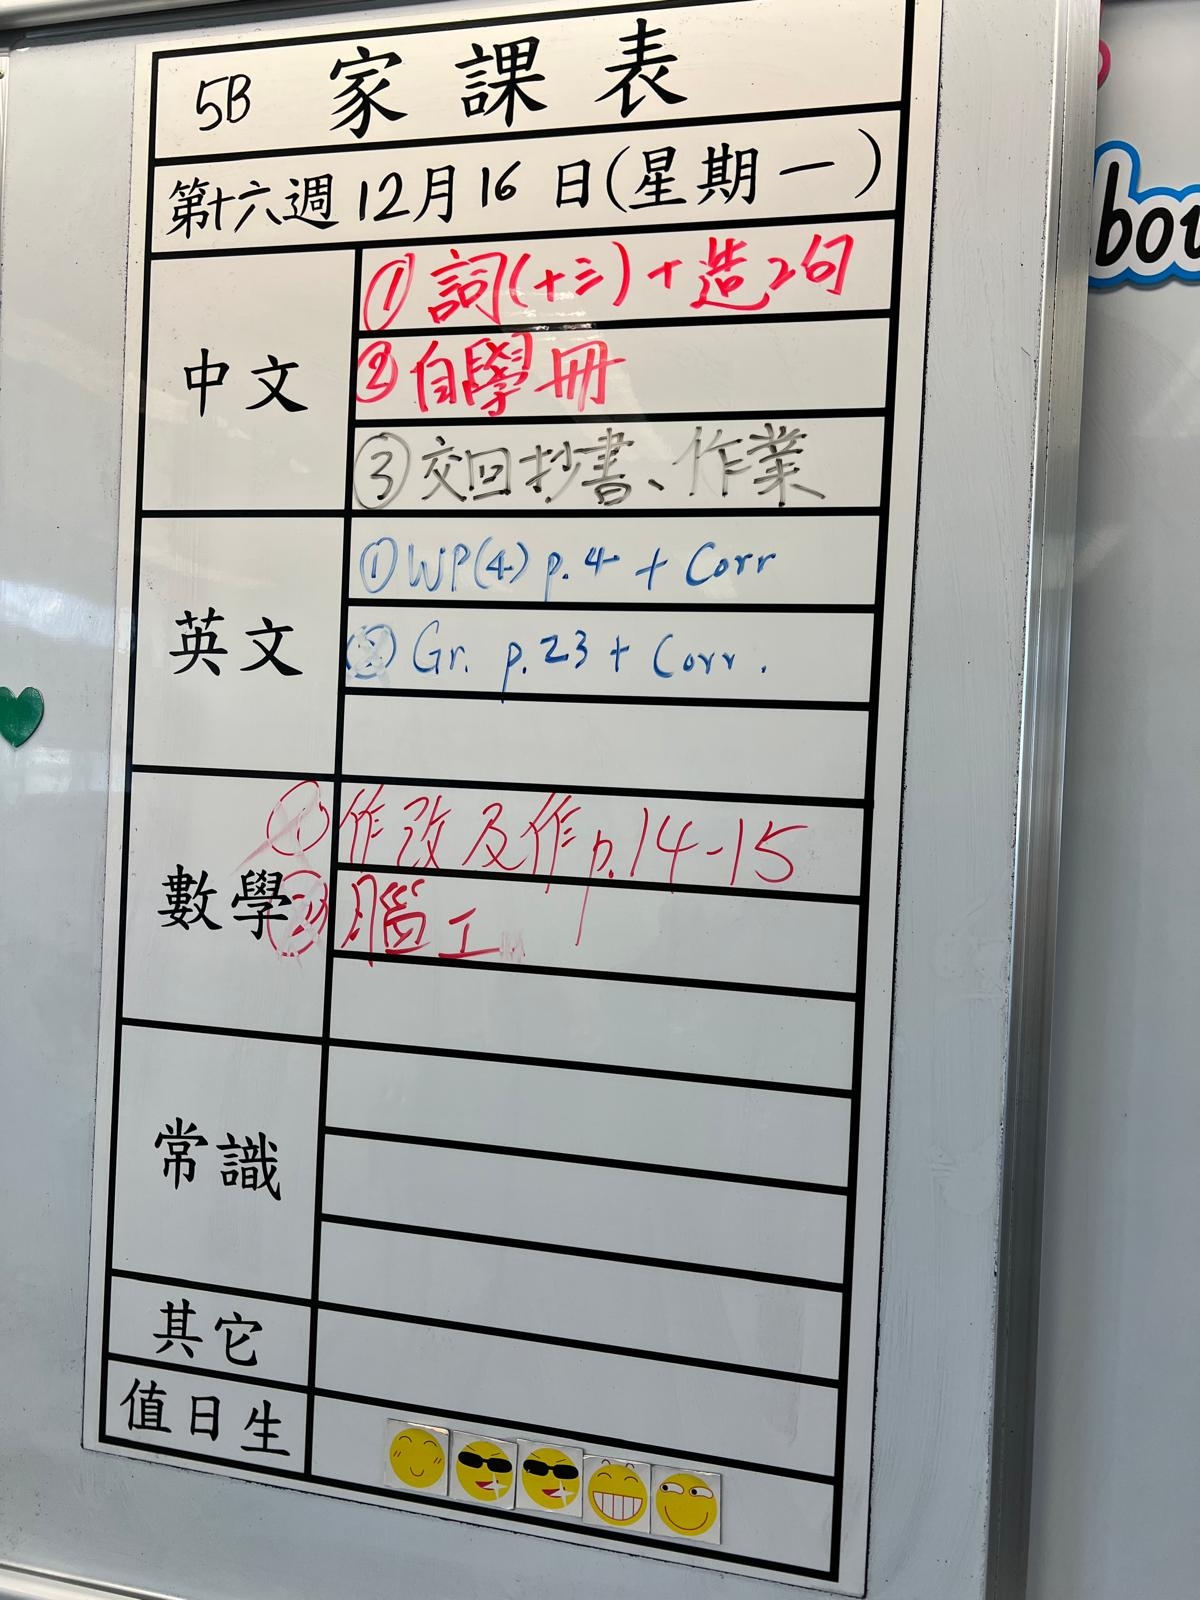 5B 家課表
第十六週 12月 16 日(星期一)
中文
① 詞(十三) + 造2句
② 自學冊
③ 交回抄書、作業
英文
① WP(4) p.4 + Corr
② Gr. p.23 + Corr.
數學
① 作改及作 p.14-15
② 腦工
常識
其它
值日生
bou